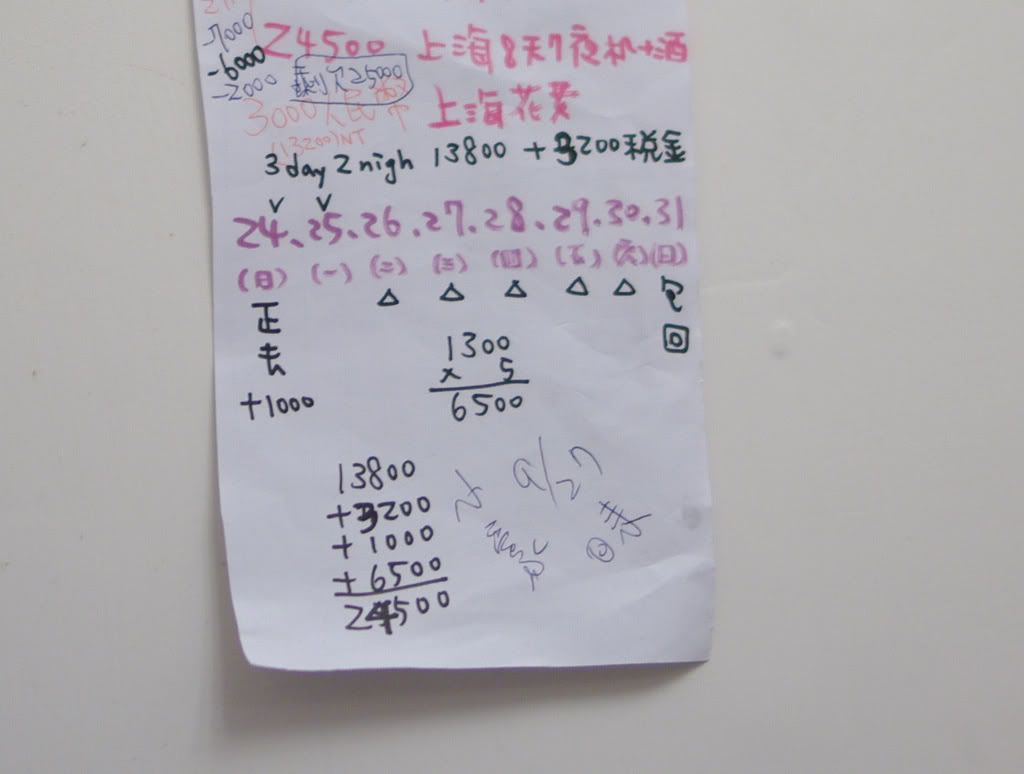 -7000
24500 上海8天7夜机+酒
-6000
-2000 剩欠25000
3000人民幣
上海花費
(13200)NT
3 day 2 nigh 13800 + 3200税金
v v
24、25、26、27、28、29、30、31
(日) (一) (二) (三) (四) (五) (六) (日)
△ △ △ △ △ 回
正
去
+1000
1300
x 5
6500
13800
+3200
+1000
+6500
24500
9/27